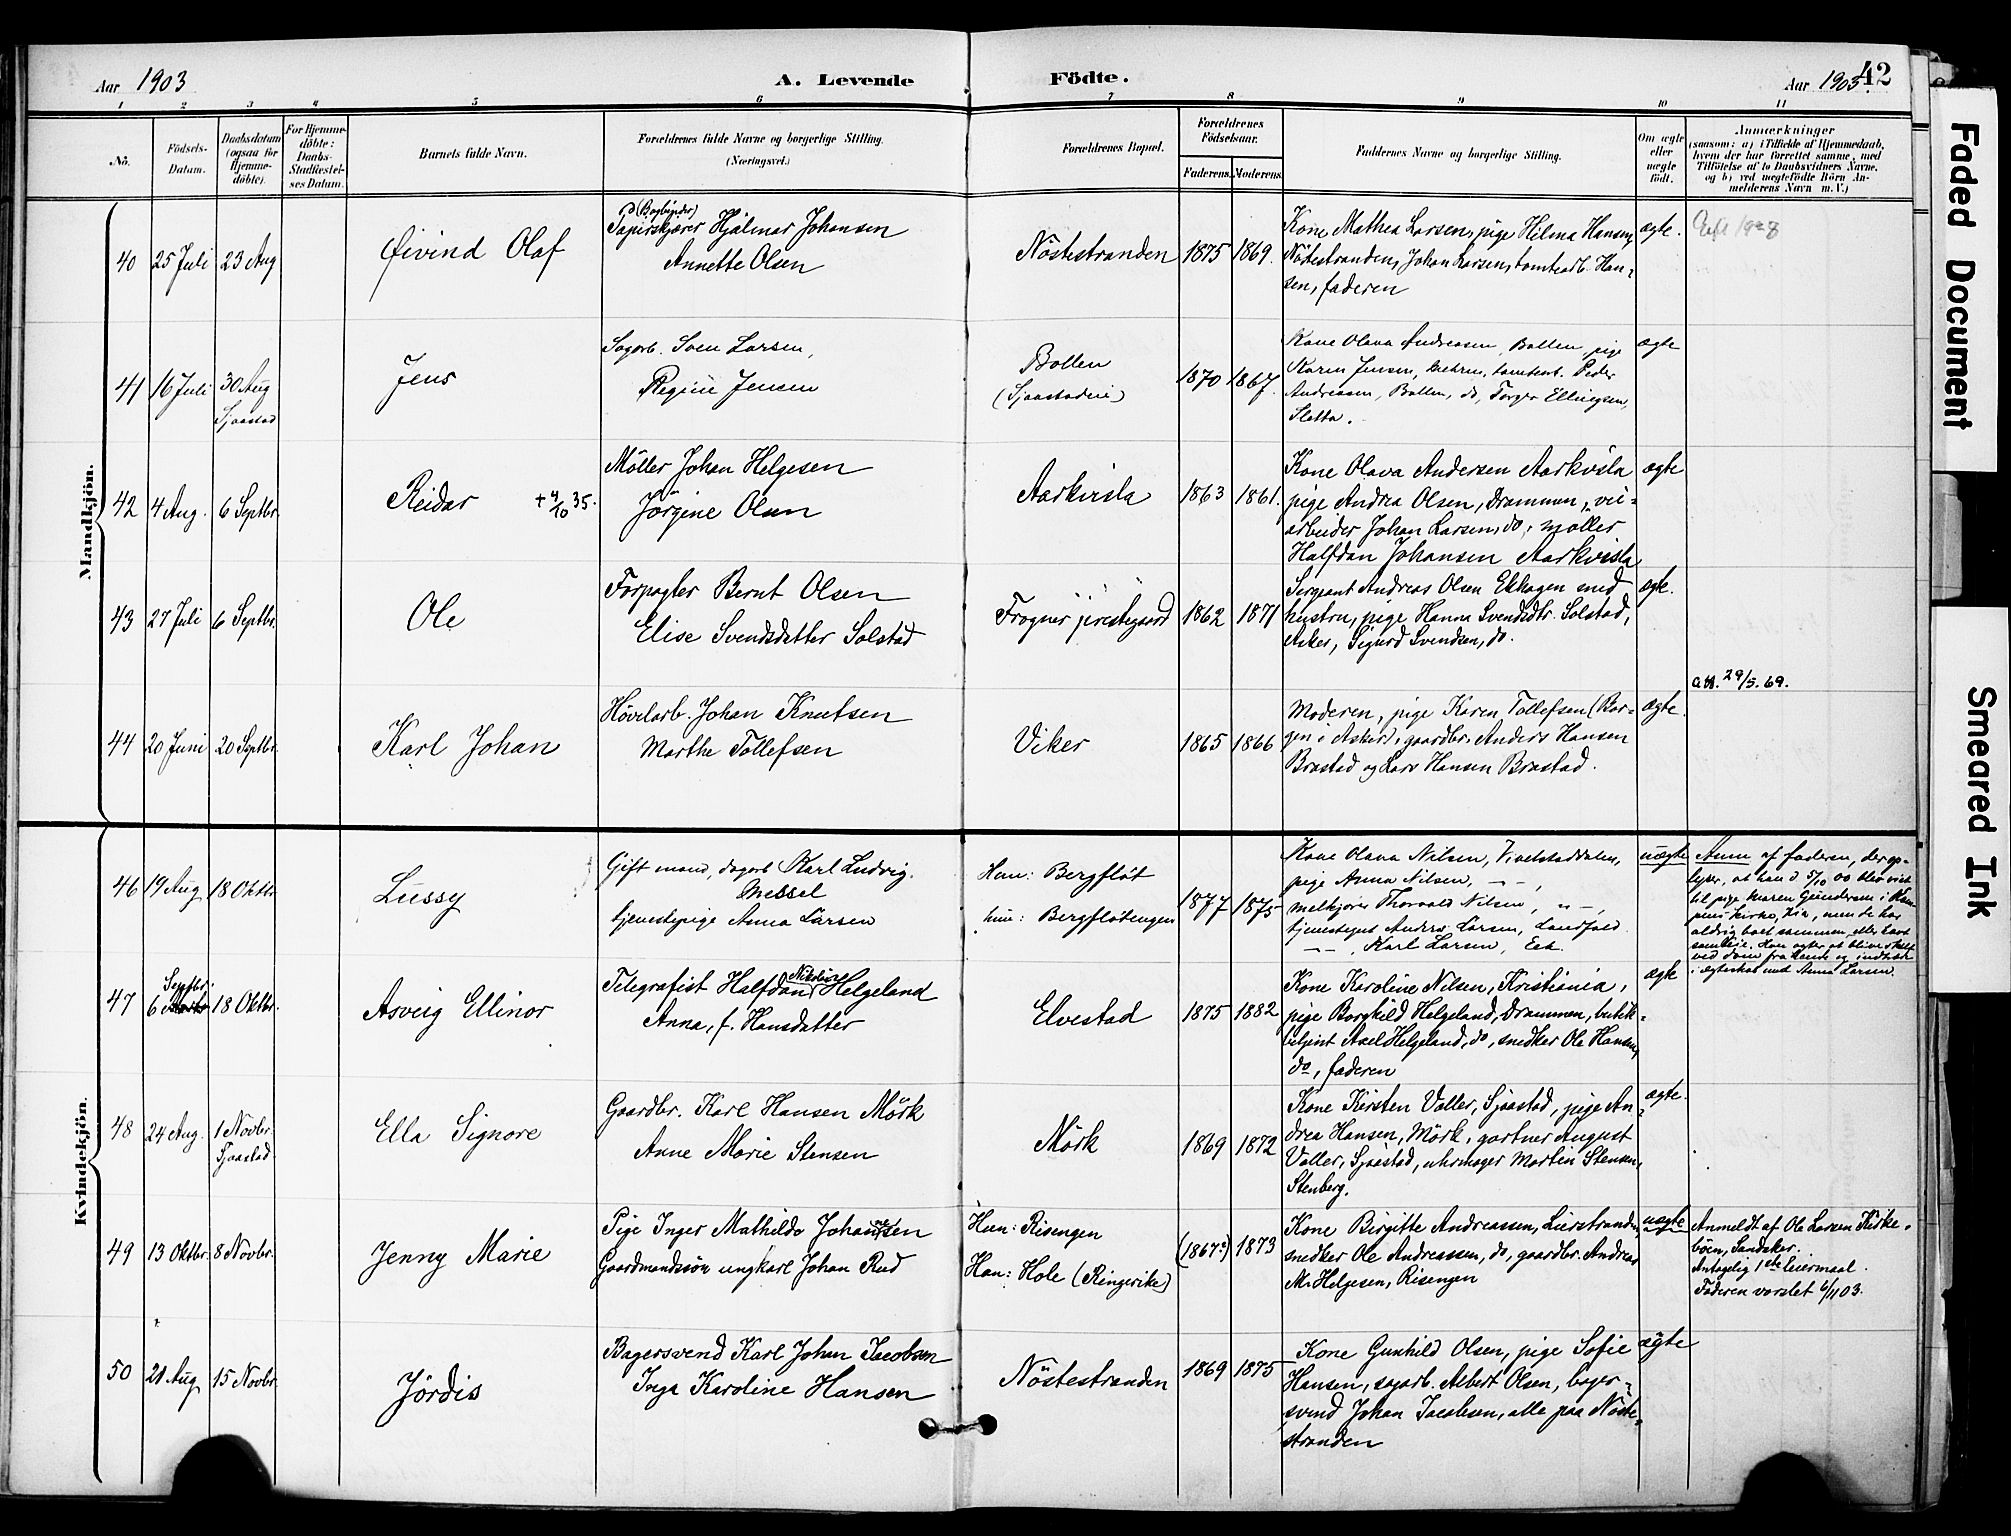 Aar 1903
A. Levende Födte.
Aar 1903.
42
1 2 3 4 5 6 7 8 9 10 11
No.
Födsels-
Datum.
Daabsdatum
(ogsaa for
Hjemme-
döbte).
For Hjemme-
döbte:
Daabs-
Stadfæstel-
ses Datum.
Barnets fulde Navn.
Forældrenes fulde Navne og borgerlige Stilling.
(Næringsvei.)
Forældrenes Bopæl.
Forældrenes
Födselsaar.
Faderens. Moderens.
Faddernes Navne og borgerlige Stilling.
Om ægte
eller
uægte
født.
Anmærkninger
(saasom: a) i Tilfælde af Hjemmedaab,
hvem der har forrettet samme, med
Tilföielse af to Daabsvidners Navne,
og b) ved uægtefödte Börn An-
melderens Navn m. V.)
Mandkjön.
40 25 Juli 23 Aug
Øivind Olaf
(Bogbinder)
Papirskjærer Hjalmar Johansen
Annette Olsen
Nöstestranden
1875 1869.
Kone Mathea Larsen, pige Hilma Hansen,
Nöstestranden, Johan Larsen, tomtearb. Han-
sen, faderen
ægte.
Gift 1928
41 16 Juli 30 Aug
Sjaastad
Jens
Sagarb. Sven Larsen,
Regine Jensen
Bollen
(Sjaastadeie)
1870 1867.
Kone Olava Andreasen, Bollen, pige
Karen Jensen, tomtearb. Peder
Andreasen, Bollen, do, Torger Ellingsen,
Sletta.
ægte
42 4 Aug. 6 Septbr.
Reidar + 4/10 35.
Möller Johan Helgesen
Jörgine Olsen
Aarkvisla
1863 1861.
Kone Olava Andersen Aarkvisla
pige Andrea Olsen, Drammen,
arbeider Johan Larsen, do, möller
Halfdan Johansen Aarkvisla
ægte
43 27 Juli 6 Septbr.
Ole
Forpagter Bernt Olsen
Elise Svendsdatter Solstad
Frogner prestegaard
1862 1871
Sergeant Andreas Olsen Ekhagen med
hustru, pige Hanna Svendsdtr. Solstad,
Asker, Sigurd Svendsen, do.
ægte.
att. 29/5. 69.
44 20 Juni 20 Septbr.
Karl Johan
Høvlarb. Johan Knutsen
Marthe Tollefsen
Viker
1865 1866
Moderen, pige Karen Tollefsen (Bor-
gen i Asker), gaardbr. Anders Hansen
Brastad og Lars Hansen Brastad.
ægte.
Kvindekjön.
46 19 Aug 18 Oktbr.
Lussy
Gift mand, dagarb Karl Ludvig
Messel
tjenestepige Anna Larsen
Han: Bergflöt
hun: Bergflötengen
1877 1875
Kone Olava Nilsen, Vivelstaddalen,
pige Anna Nilsen, – „ –,
melkjører Thorvald Nilsen, – „ –,
tjenestegut Anders Larsen, Landfald
– „ –, Karl Larsen, Eek.
uægte
Anm af faderen, der op-
lyser, at han d 5/10 00 blev viet
til pige Maren Gundersen i
kirke, men de har
aldrig boet sammen eller havt
samleie. Han agter at blive skilt
ved dom fra hende og indtræde
i ægteskab med Anna Larsen.
47 6 Septbr. 18 Oktbr.
Asveig Ellinor
Telegrafist Halfdan Nikolai Helgeland
Anna, f. Hansdatter
Elvestad
1875 1882
Kone Karoline Nilsen, Kristiania,
pige Borghild Helgeland, Drammen, butik-
betjent Axel Helgeland, do, snedker Ole Hansen,
do, faderen
ægte
48 24 Aug. 1 Novbr.
Sjaastad.
Ella Signore
Gaardbr. Karl Hansen Mörk
Anne Marie Stensen
Mörk
1869 1872
Kone Kirsten Valler, Sjaastad, pige An-
drea Hansen, Mörk, gartner August
Valler, Sjaastad, uhrmager Martin Stensen,
Stenberg.
ægte.
49 13 Oktbr. 8 Novbr.
Jenny Marie
Pige Inger Mathilde Johannesen
Gaardmandssön ungkarl Johan Rud
Hun: Risengen
Han: Hole (Ringerike)
(1867?) 1873
Kone Birgitte Andreassen, Lierstranden,
snedker Ole Andreassen, do, gaardbr. Andreas
M. Helgesen, Risengen
uægte
Anmeldt af Ole Larsen Kirke-
böen, Sandsker.
Antagelig 1ste leiermaal.
Faderen varslet 6/11 03.
50 21 Aug 15 Novbr.
Jördis
Bagersvend Karl Johan Jacobsen
Inga Karoline Hansen
Nöstestranden
1869 1875
Kone Gunhild Olsen, pige Sofie
Hansen, sagarb. Albert Olsen, bager-
svend Johan Jacobsen, alle paa Nöste-
stranden
ægte
Faded Document
Smeared Ink